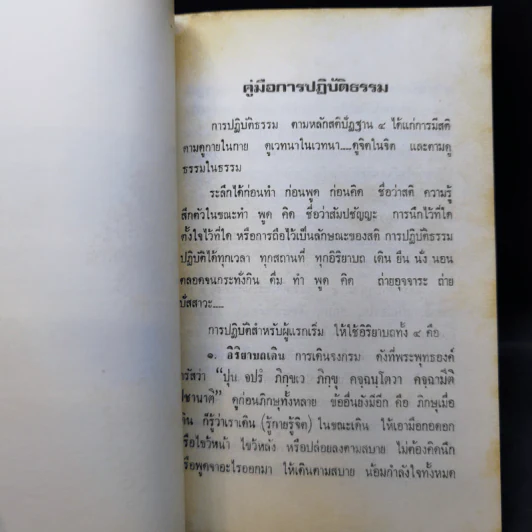 คู่มือการปฏิบัติธรรม
การปฏิบัติธรรม ตามหลักสติปัฏฐาน ๔ ได้แก่การมีสติ
ตามดูกายในกาย ดูเวทนาในเวทนา.....ดูจิตในจิต และตามดู
ธรรมในธรรม
ระลึกได้ก่อนทำ ก่อนพูด ก่อนคิด ชื่อว่าสติ ความรู้
สึกตัวในขณะทำ พูด คิด ชื่อว่าสัมปชัญญะ การนึกไว้ที่ใด
ตั้งใจไว้ที่ใด หรือการถือไว้เป็นลักษณะของสติ การปฏิบัติธรรม
ปฏิบัติได้ทุกเวลา ทุกสถานที่ ทุกอิริยาบถ เดิน ยืน นั่ง นอน
ตลอดจนกระทั่งกิน ดื่ม ทำ พูด คิด ถ่ายอุจจาระ ถ่าย
ปัสสาวะ.....
การปฏิบัติสำหรับผู้แรกเริ่ม ให้ใช้อิริยาบถทั้ง ๔ คือ
๑. อิริยาบถเดิน การเดินจงกรม ดังที่พระพุทธองค์
ตรัสว่า "ปุน จปรํ ภิกฺขเว ภิกฺขุ คจฺฉนฺโตวา คจฺฉามีติ
ปชานาติ" ดูก่อนภิกษุทั้งหลาย ข้ออื่นยังมีอีก คือ ภิกษุเมื่อ
เดิน ก็รู้ว่าเราเดิน (รู้กายรู้จิต) ในขณะเดิน ให้เอามือกอดอก
หรือไขว้หน้า ไขว้หลัง หรือปล่อยลงตามสบาย ไม่ต้องคิดนึก
หรือพูดจาอะไรออกมา ให้เดินตามสบาย น้อมกำลังใจทั้งหมด